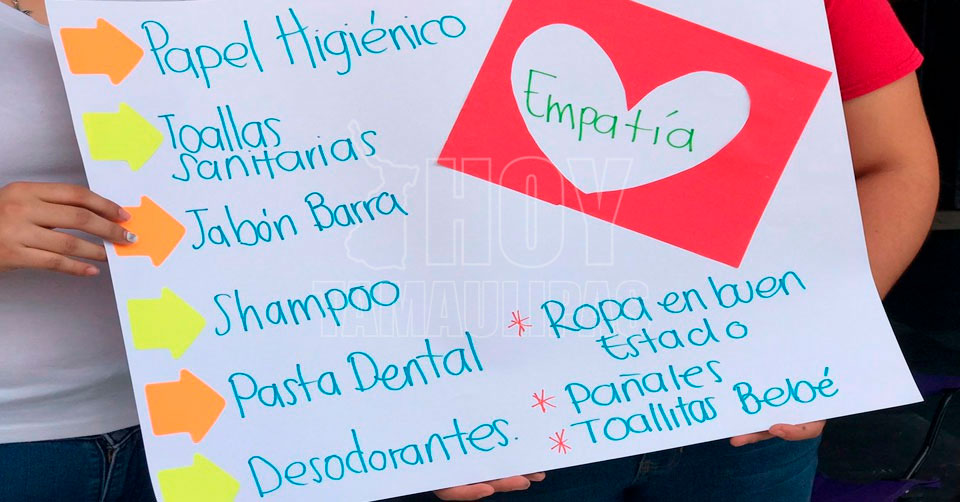 Papel Higiénico
Toallas
sanitarias
Jabón Barra
Shampoo
Pasta Dental
Desodorantes.
Empatía
* Ropa en buen
Estado
* Pañales
* Toallitas Bebé
HOY
TAMAULIPAS